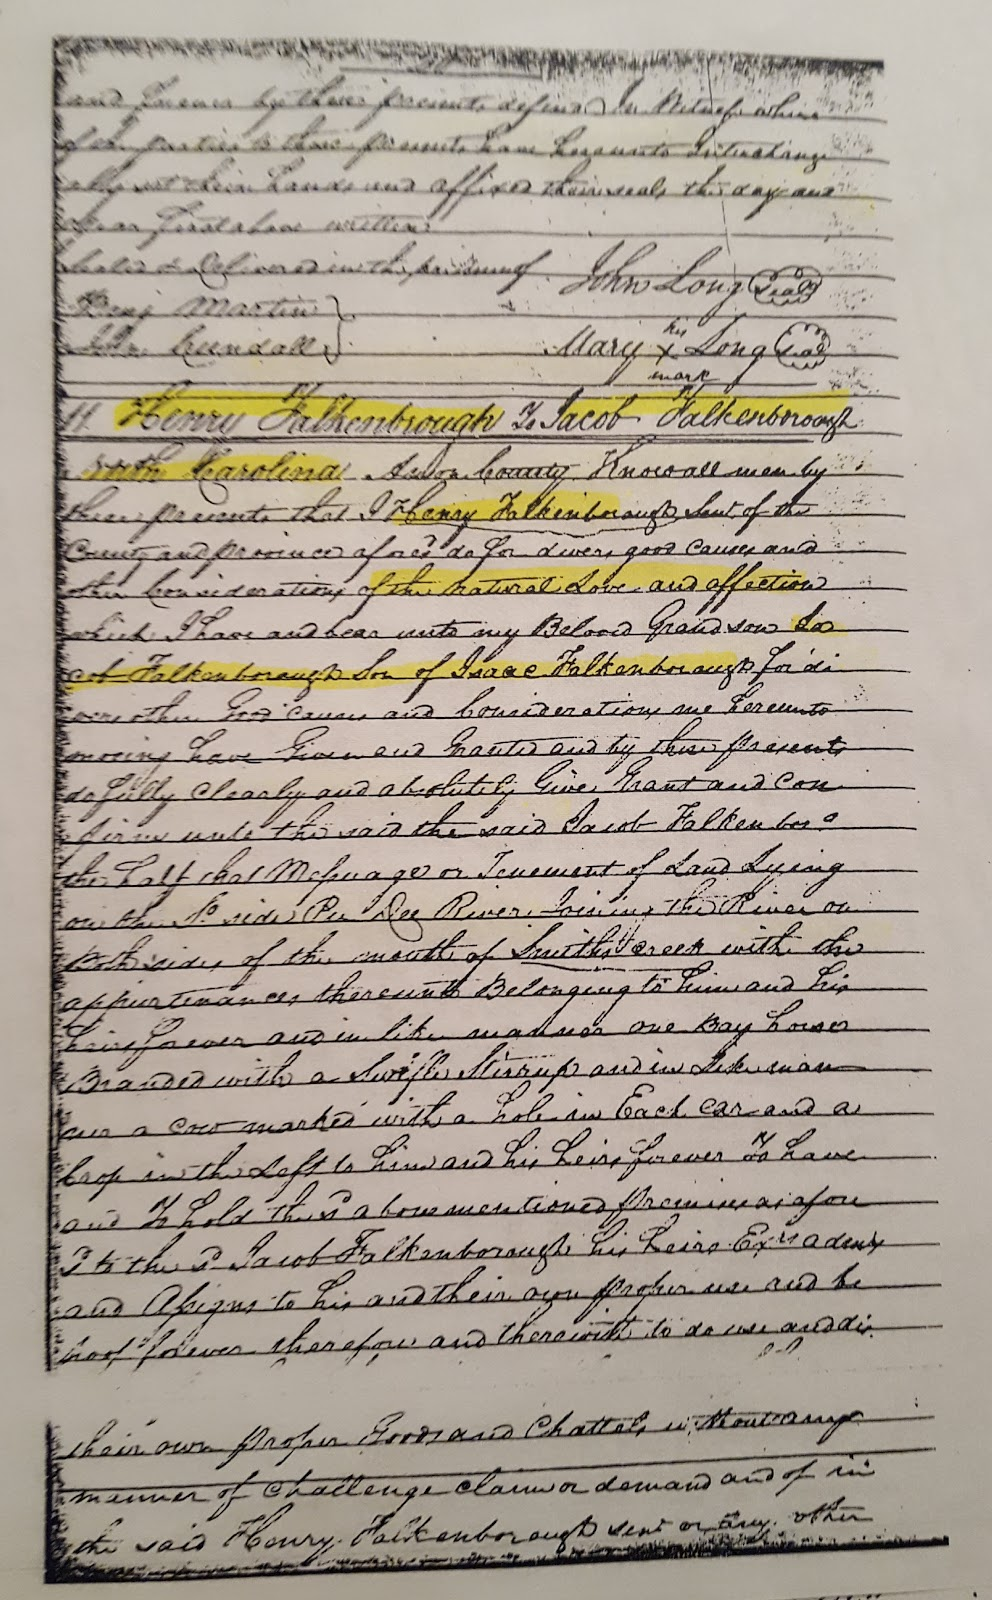 and forever by these presents defend In Witness where
of the parties to these presents have hereunto Interchange
ably set their hands and affixed their seals the day and
year first above written
Sealed & Delivered in the presence of John Long Seal
Benj Martin
Kendall Mary X Long Seal
his
mark
Henry Falkenbrough To Jacob Falkenborough
North Carolina Anson County Know all men by
these presents that I Henry Falkenborough Senr of the
County and province afores'd do for divers good causes and
other Considerations of the natural Love and affection
which I have and bear unto my Beloved Grand son Ja
cob Falkenborough Son of Isaac Falkenborough for di
vers other Good causes and Considerations me hereunto
moving have Given and Granted and by these presents
do fully clearly and absolutely Give Grant and con
firm unto the said the said Jacob Falkenboro
the half that Messuage or Tenement of Land Lying
on the So side Pee Dee River Joining the River on
Both sides of the mouth of Smiths creek with the
appurtenances thereunto Belonging to him and his
heirs forever and in like manner one Bay horse
Branded with a Stirrup and in like man
ner a cow marked with a hole in Each ear and a
Crop in the Left to him and his heirs forever To have
and To hold the sd above mentioned premises as afore
sd to the sd Jacob Falkenborough his heirs Exrs admrs
and Assigns to his and their own proper use and be
hoof forever therefore and therewith to do use and dis
their own proper Goods and Chattels without any
manner of Challenge claim or demand and of
the said Henry Falkenborough senr or any other